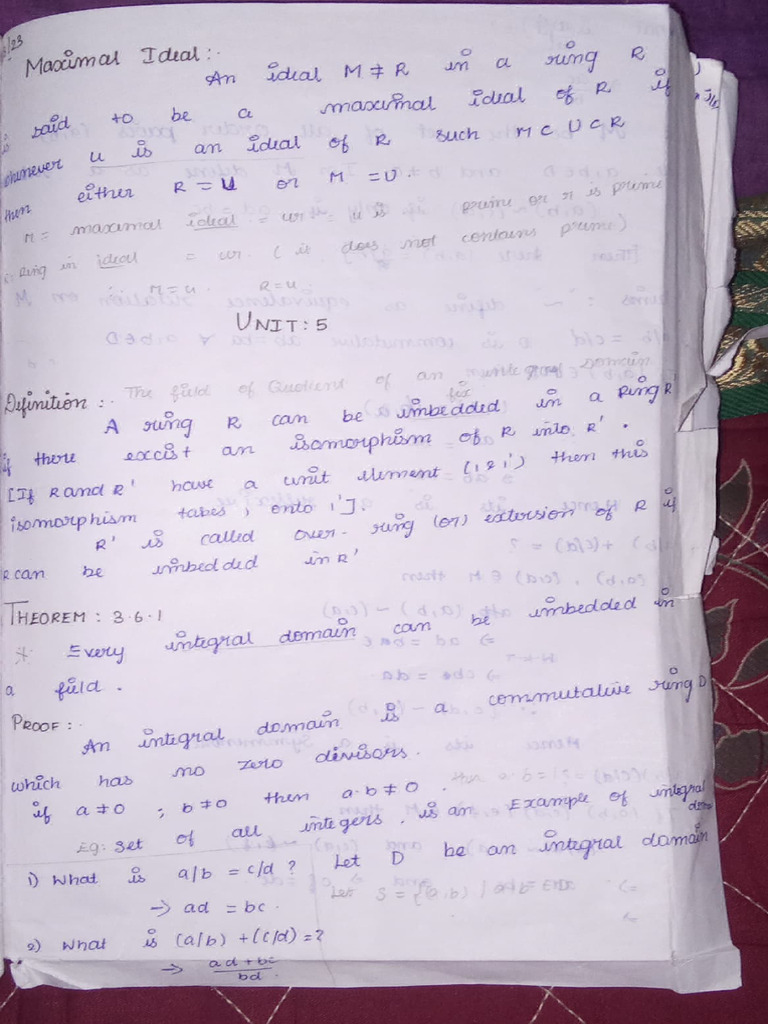 /23
Maximal Ideal :.
An ideal M ≠ R in a ring R
is said to be a maximal ideal of R if
whenever U is an ideal of R such M ⊂ U ⊂ R
then either R = U or M = U.
M = maximal ideal = prime or n is prime
Ring in ideal = (is does not contains prime)
M = U. R = U
UNIT : 5
The field of Quotient of an integral domain
Definition :.
A ring R can be imbedded in a Ring R'
if there excist an isomorphism of R into R'.
[If R and R' have a unit element (1 & 1') then this
isomorphism takes 1 onto 1'].
R' is called over-ring (or) extersion of R if
R can be imbedded in R'
THEOREM : 3.6.1
* Every integral domain can be imbedded in
a field.
PROOF :.
An integral domain is a commutative ring D
which has no zero divisors.
if a ≠ 0 ; b ≠ 0 then a·b ≠ 0.
Eg: set of all integers. is an Example of integral
domain
1) What is a/b = c/d ? Let D be an integral domain
→ ad = bc.
2) What is (a/b) + (c/d) = ?
→ ad + bc / bd.